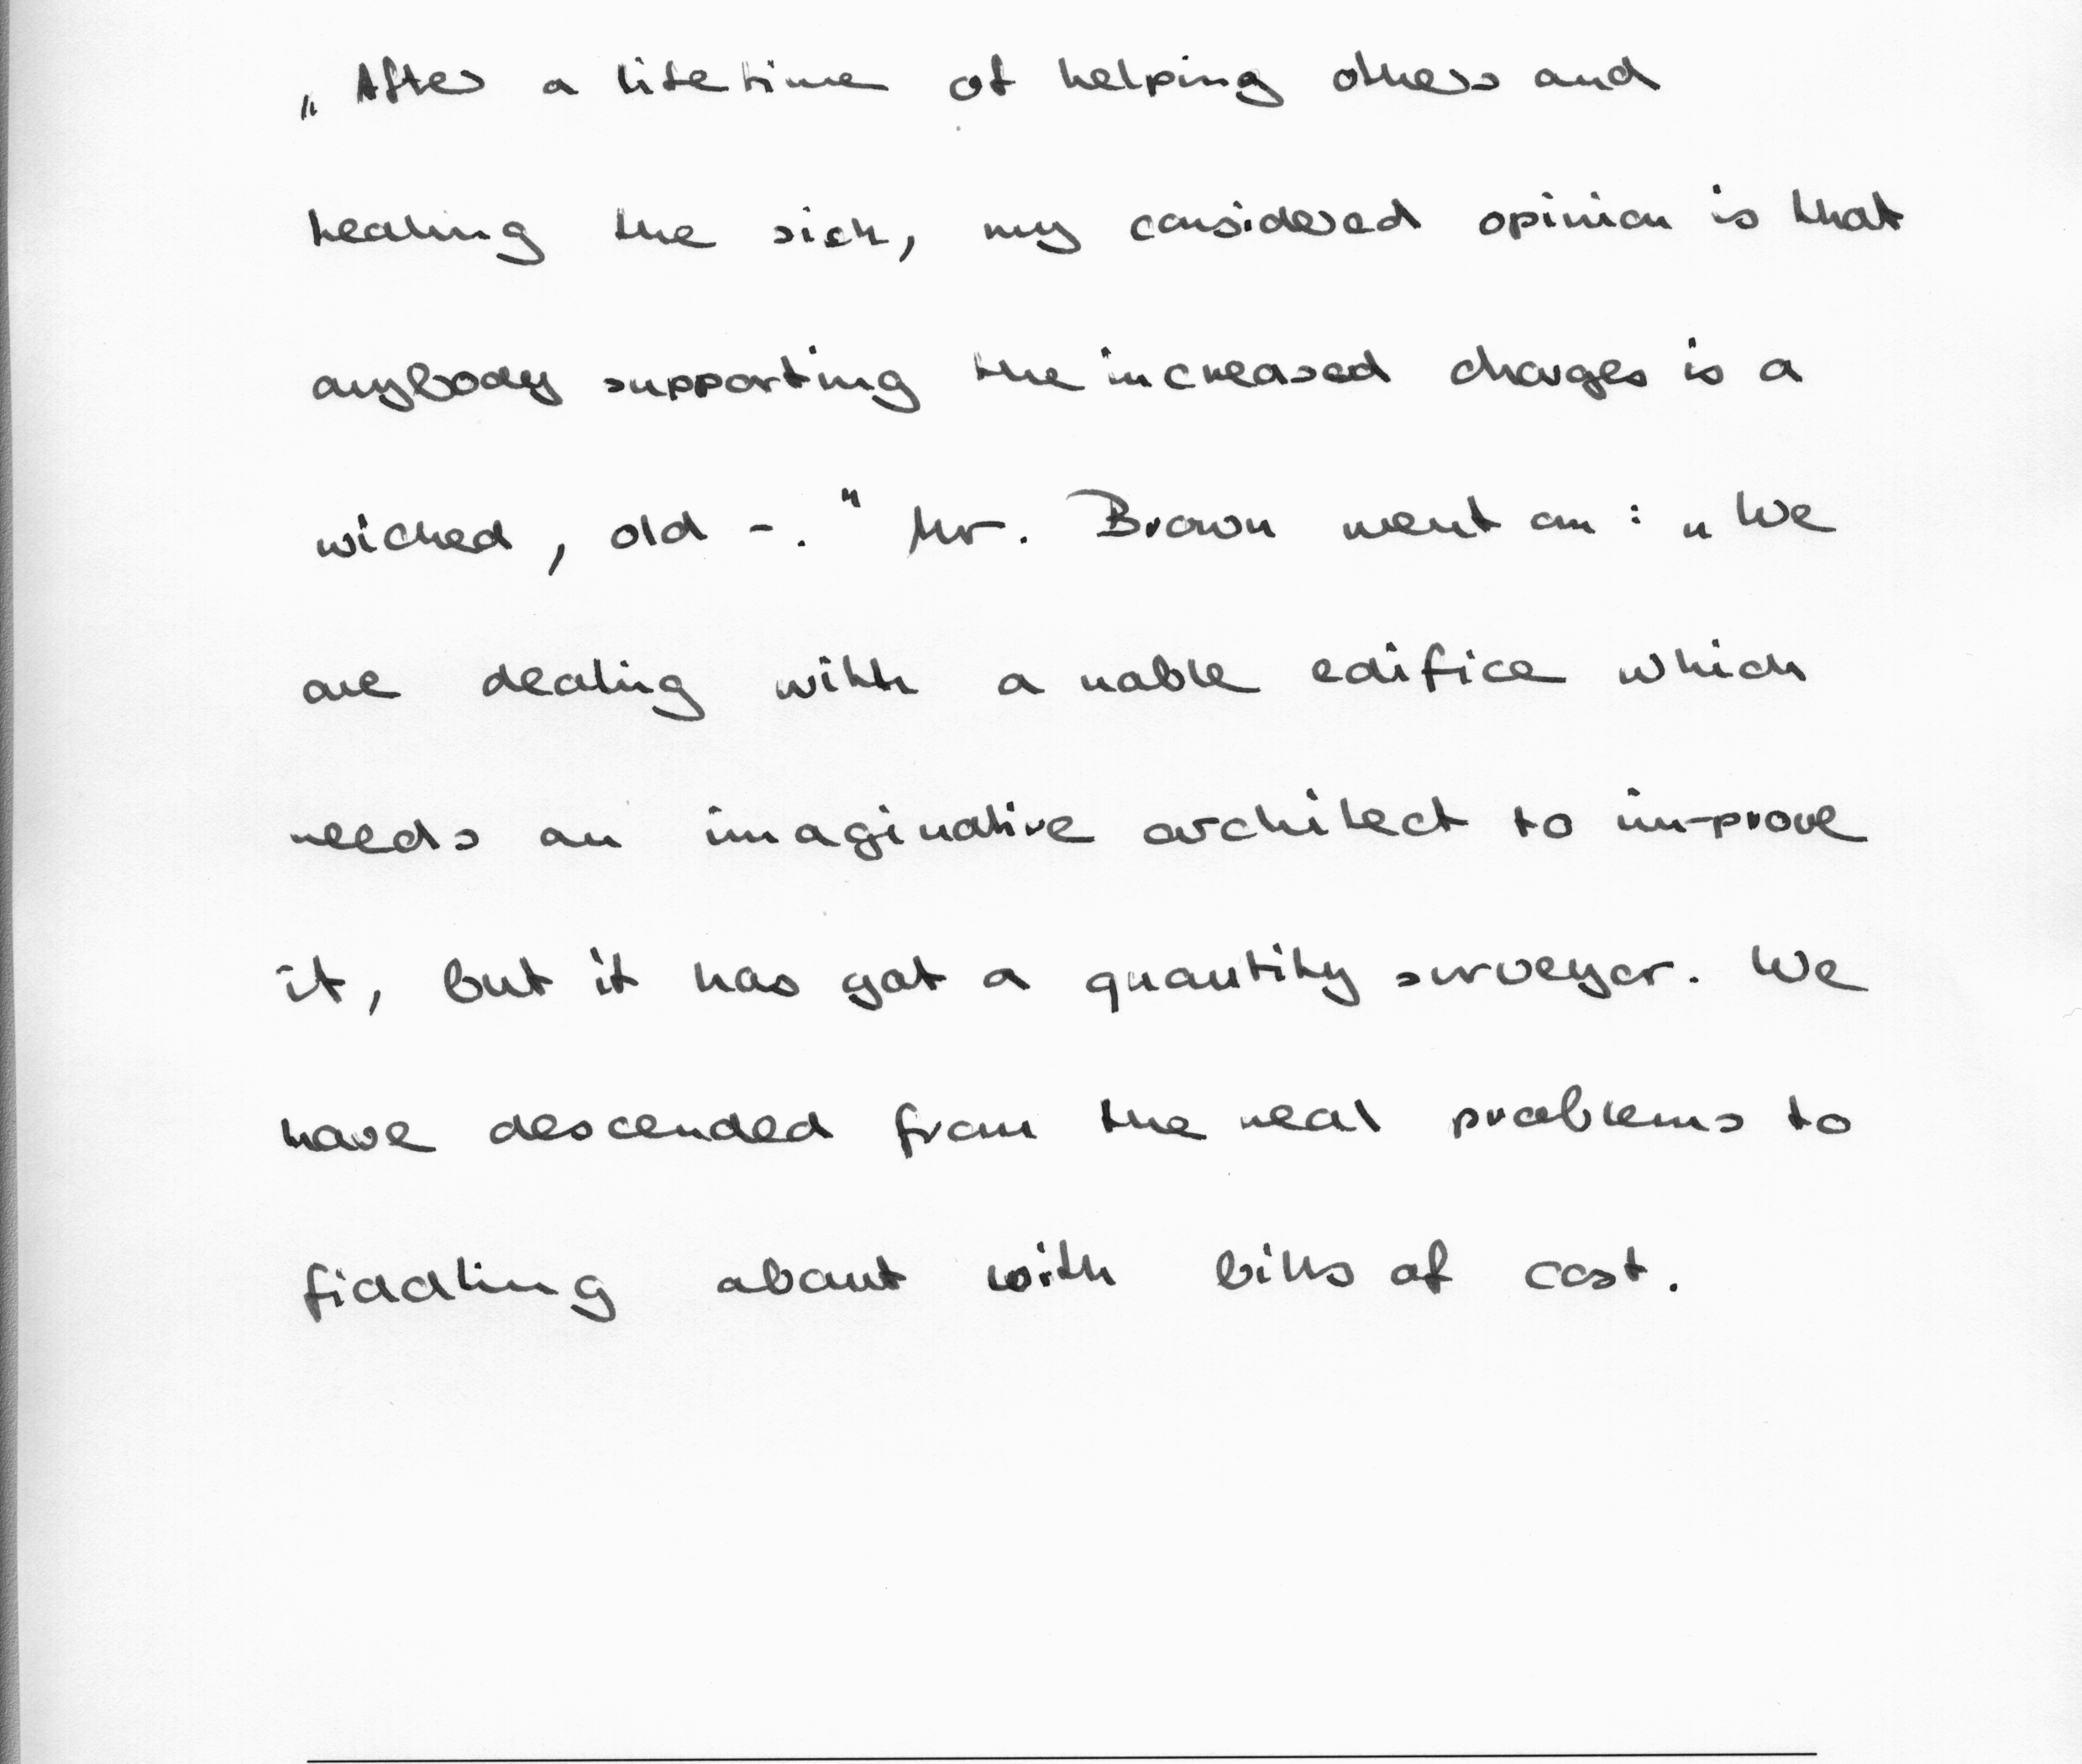 „After a lifetime of helping others and
healing the sick, my considered opinion is that
anybody supporting the increased charges is a
wicked, old -." Mr. Brown went on: „We
are dealing with a noble edifice which
needs an imaginative architect to im-prove
it, but it has got a quantity surveyor. We
have descended from the real problems to
fiddling about with bills of cost.